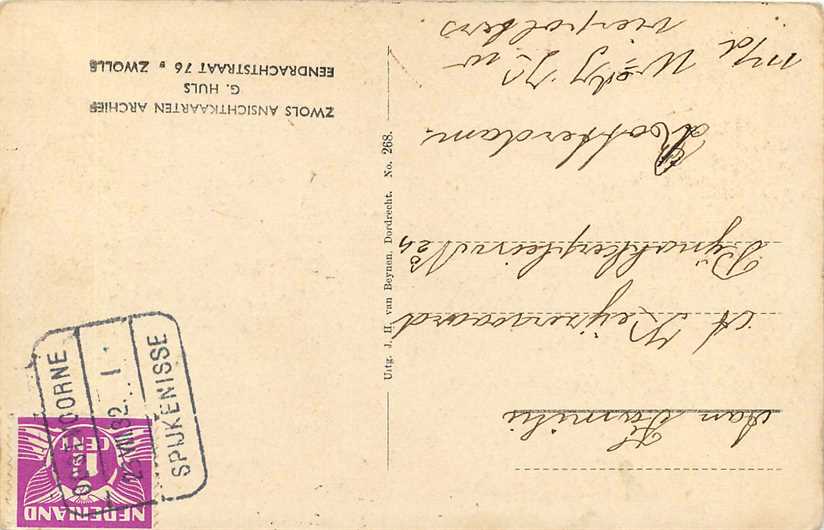 Aan Familie
A Keijzerwaard
Pijnakkerplein No
Rotterdam.
m/d
vierpolders.
Uitg. J. H. van Beynen, Dordrecht. No. 268.
NEDERLAND
1½
CENT
OOSTVOORNE
SPIJKENISSE
ZWOLS ANSICHTKAARTEN ARCHIEF
G. HULS
EENDRACHTSTRAAT 76, ZWOLLE